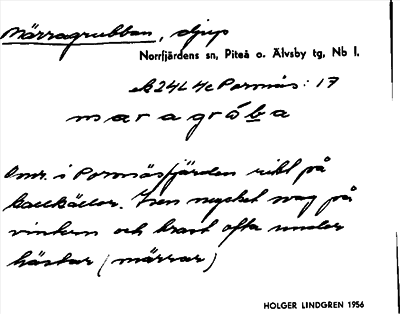 Märragrubban, djup
Norrfjärdens sn, Piteå o. Älvsby tg, Nb l.
ek 24L 4c Porsnäs: 17
maragróba
Omr. i Porsnäsfjärden rikt på
kallkällor. Isen mycket svag på
vintern och brast ofta under
hästar (märrar)
HOLGER LINDGREN 1956